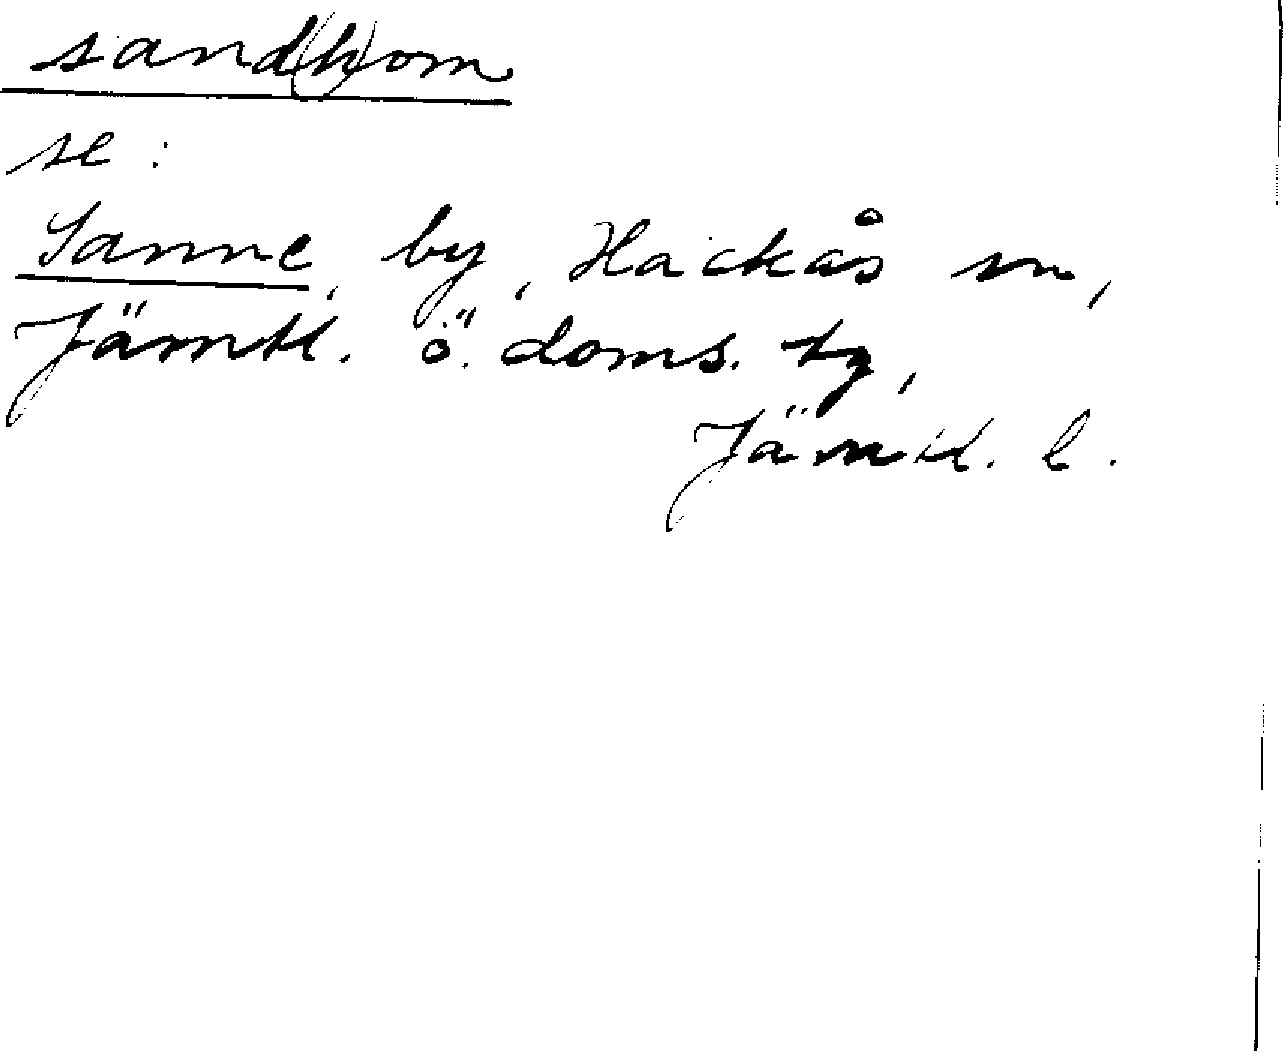 sand(h)om
se:
Sanne, by, Hackås sn,
Jämtl. ö. doms. tg,
Jämtl. l.